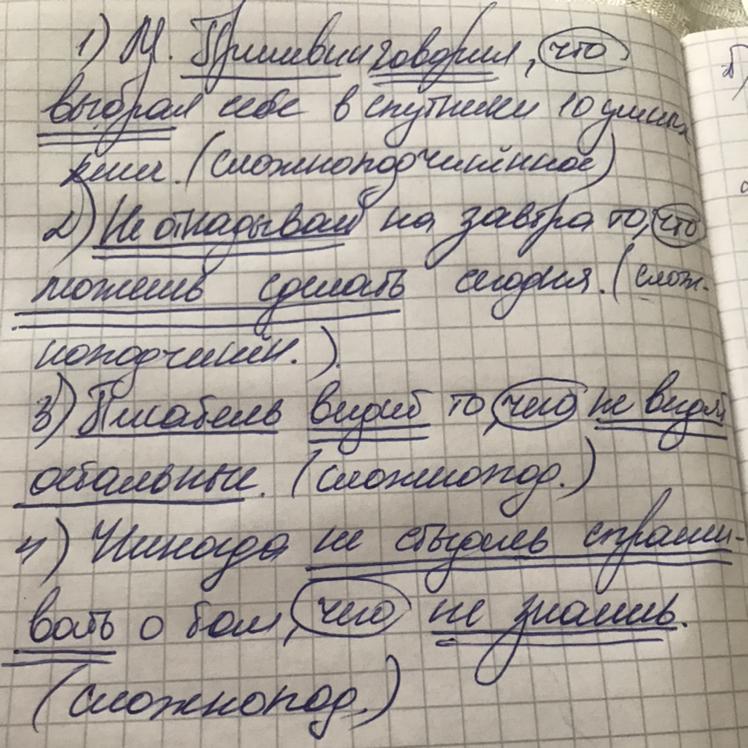 1) М. Пришвин говорил, что
выбрал себе в спутники 10 умных
книг. (сложноподчинённое)
2) Не откладывай на завтра то, что
можешь сделать сегодня. (слож-
ноподчинён.).
3) Писатель видит то, чего не видят
остальные. (сложнопод.)
4) Никогда не стыдись спраши-
вать о том, чего не знаешь.
(сложнопод.)